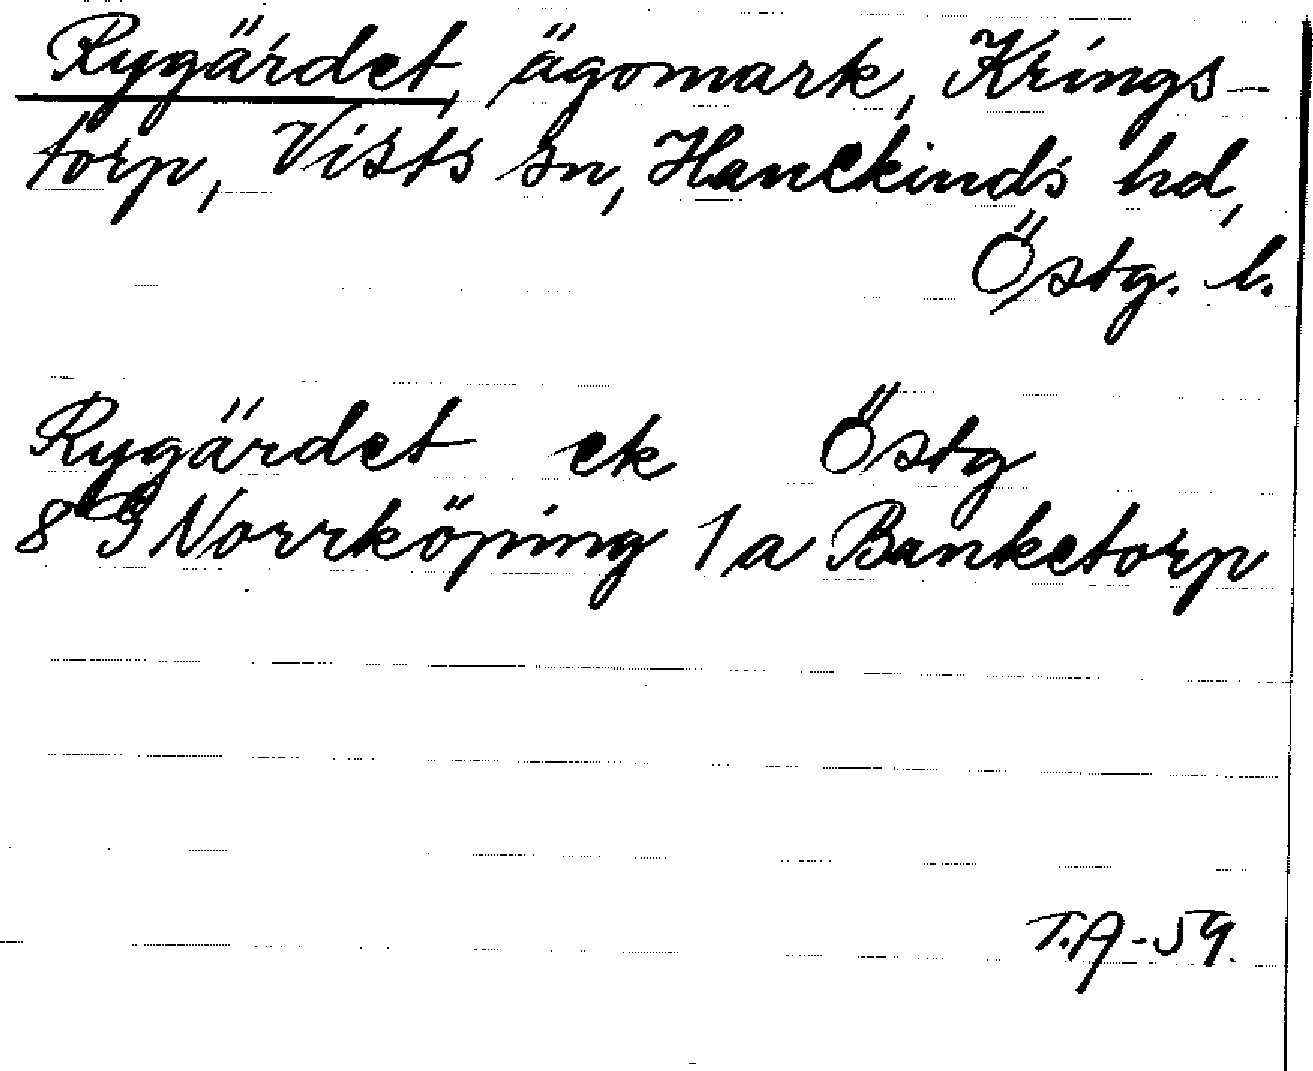 Rygärdet, ägomark, Krings-
torp, Vists sn, Hanekinds hd,
Östg. l.
Rygärdet ek Östg
8 G Norrköping 1 a Banketorp
T.A-59.